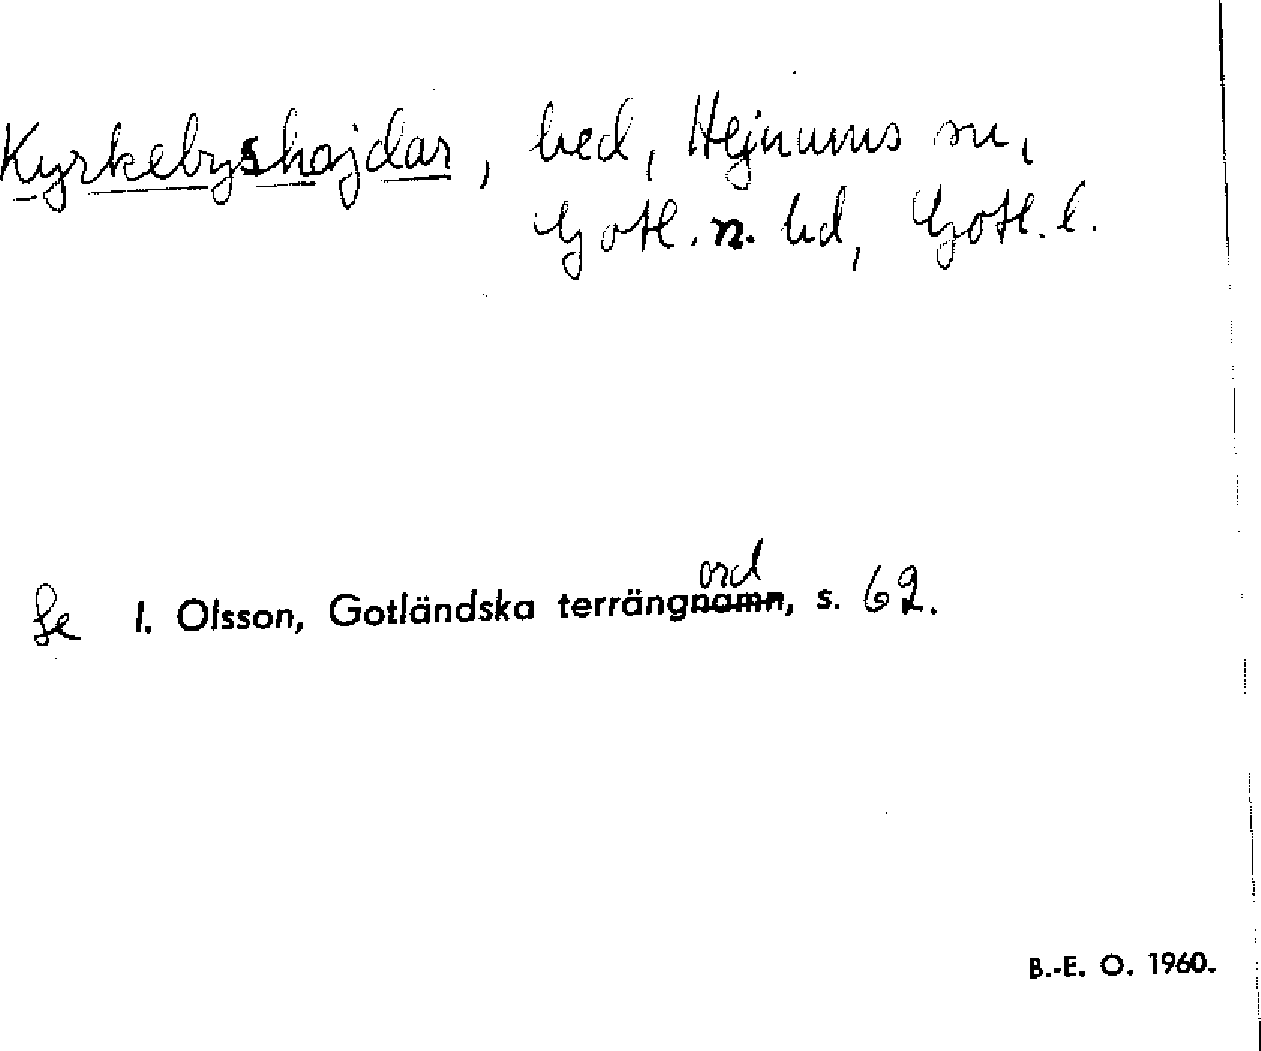 Kyrkebyshajdar, hed, Hejnums sn,
Gotl. n. hd, Gotl. l.
Se I. Olsson, Gotländska terrängord, s. 62.
B.-E. O. 1960.